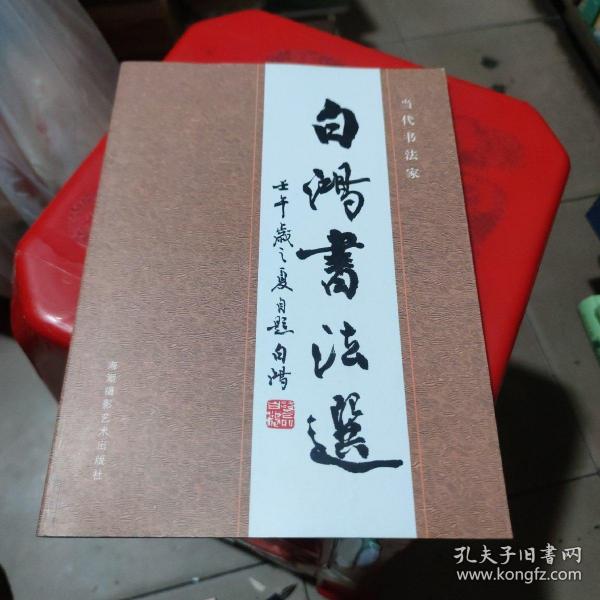 当代书法家
白鸿書法選
壬午歲之夏自題白鸿
海潮摄影艺术出版社
孔夫子旧書网
www.kongfz.com